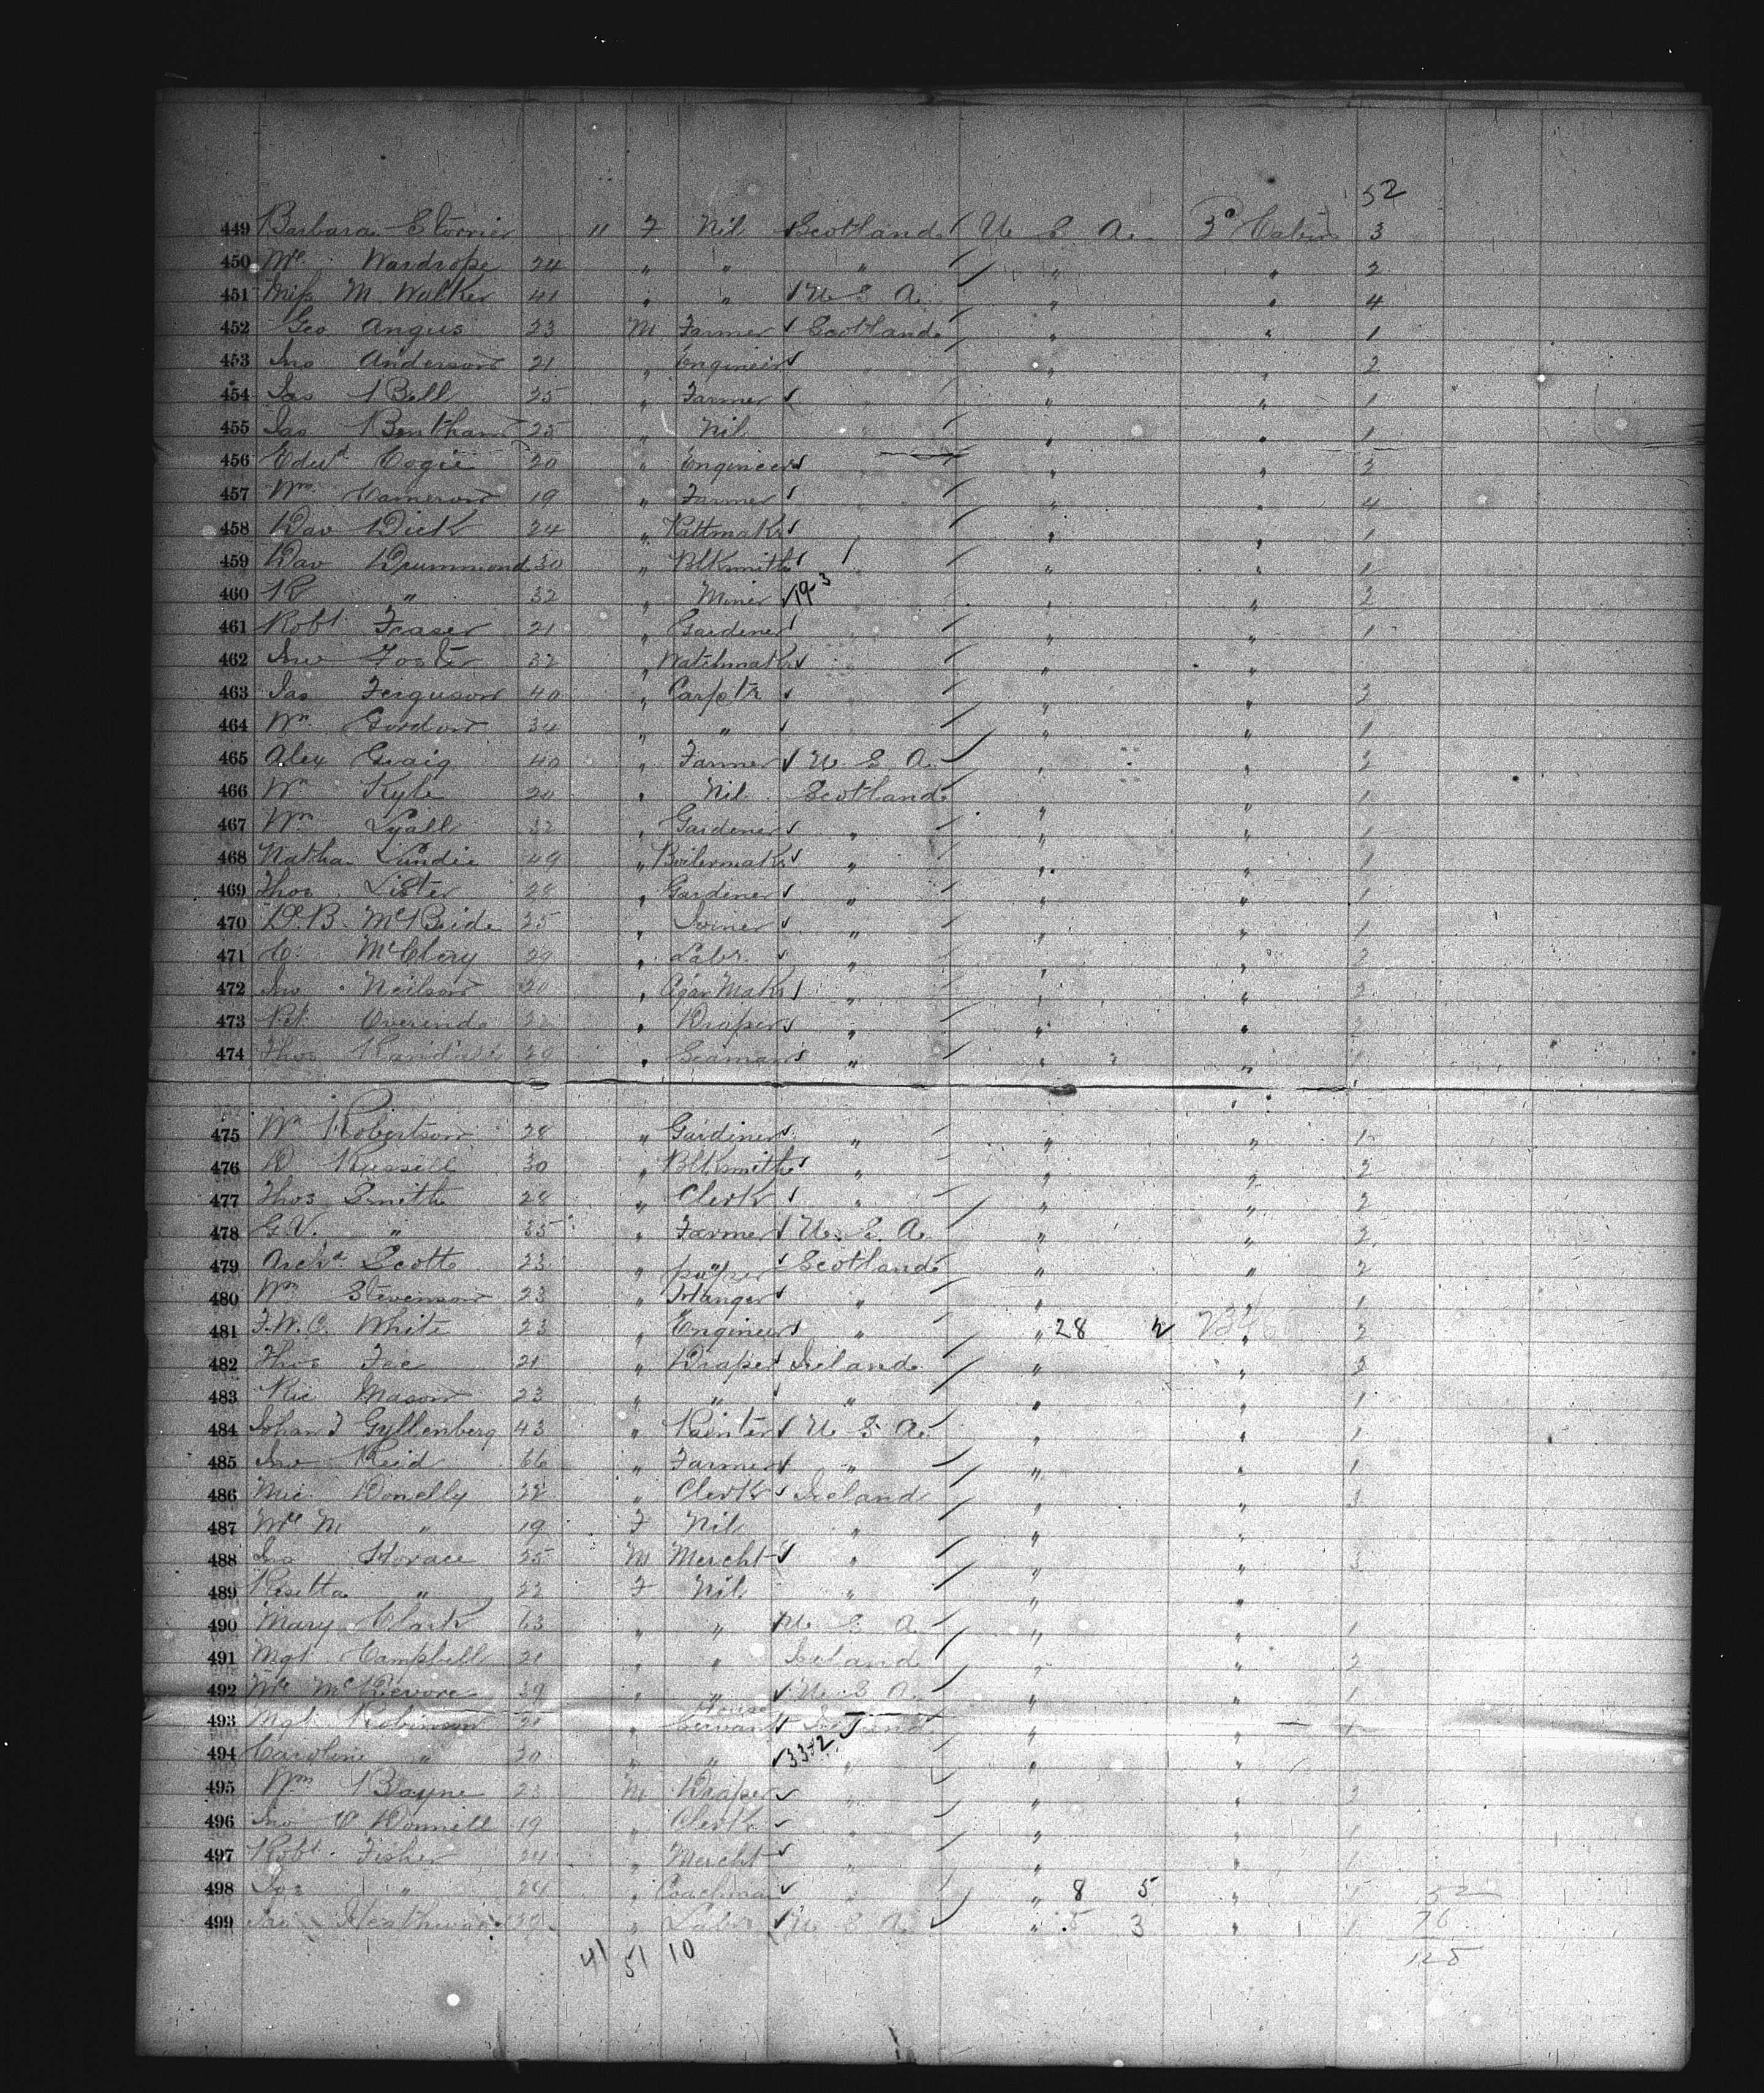 52
449 Barbara Storrier " F Nil Scotland U S A. 3º Cabin 3
450 Mrs Wardrope 24 " " " " " 2
451 Miss M. Walker 41 " " U S A. " " 4
452 Geo Angus 23 M Farmer Scotland " " 1
453 Jno Anderson 21 " Engineer " " " 2
454 Jas Bell 25 " Farmer " " " 1
455 Jas Bentham 25 " Nil " " " 1
456 Edwd Cogie 20 " Engineer " " " 2
457 Wm Cameron 19 " Farmer " " " 4
458 Dav Dick 24 " " " " 1
459 Dav Drummond 30 " Blksmith " " " 1
460 R " 32 " Miner 19-3 " " 2
461 Robt Fraser 21 " Gardener " " " 1
462 Jno Foster 32 " Watchmakr " " "
463 Jas Ferguson 40 " Carptr " " 2
464 Wm Gordon 34 " " " " 1
465 Alex Graig 40 " Farmer U. S. A. " " 2
466 Wm Kyle 20 " Nil. Scotland " " 1
467 Wm Lyall 32 " Gardener " " " 1
468 Nathan Lundie 49 " Boilermakr " " " 1
469 Thos Lister 28 " Gardener " " " 1
470 D. B. McBride 25 " Joiner " " " 1
471 C. McClory 29 " Labr. " " " 2
472 Jno Neilson 20 " Cigar Makr " " " 2
473 Overend 22 " Draper " " " 2
474 Thos Randall 29 " Seaman " " " 1
475 Wm Robertson 28 " Gardiner " " " 1
476 D Russell 30 " Blksmith " " " 2
477 Thos Smith 28 " Clerk " " " 2
478 G. V. " 35 " Farmer U. S. A. " " 2
479 Archd Scott 23 " " Scotland " " 2
paper
480 Wm Stevenson 23 " Hanger " " " 1
481 F. W. C. White 23 " Engineer " " 28 2 " 2
482 Thos Fee 21 " Draper Ireland " " 2
483 Ric Mason 23 " " " " " 1
484 Johan F Gyllenberg 43 " Painter U S A. " " 1
485 Jno Reid 66 " Farmer " " " 1
486 Mic Donelly 22 " Clerk Ireland " " 3
487 Mrs M " 19 F Nil " " "
488 Jno Horace 25 M Mercht " " " 3
489 Rosetta " 22 F Nil. " " "
490 Mary Clark 63 " " U. S A. " " 1
491 Mgt Campbell 21 " " Ireland " " 2
492 Mrs 39 " " U. S A. " " 1
House
493 Mgt Robinson 21 " Servant Ireland " " 1
494 Caroline " 20 " " 33-2 " " "
495 Wm Bayne 23 M Draper " " " 2
496 Jno O'Donnell 19 " Clerk " " " 1
497 Robt Fisher 24 " Mercht " " 1
498 Jos " 24 " Coachman " " 8 5 " 1 52
499 Jno 30 " Labr U S A. " 5 3 " 1 76
41 51 10 128